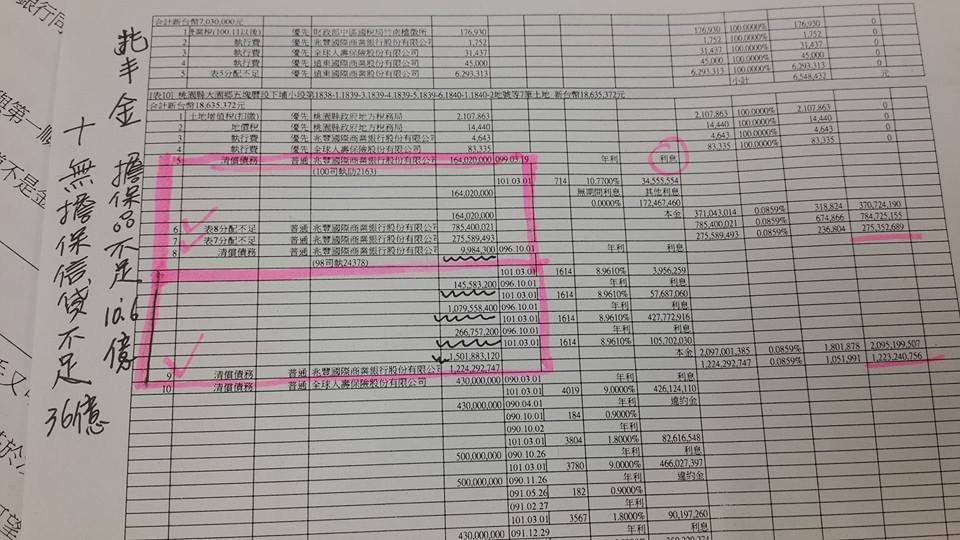 銀行同
兆丰金
擔保品不足10.6億
十無擔保信貸不足36億
合計新台幣7,030,000元
1 營業稅(100.11以後) 優先 財政部中區國稅局竹南稽徵所 176,930 176,930 100.0000% 176,930 0
2 執行費 優先 兆豐國際商業銀行股份有限公司 1,752 1,752 100.0000% 1,752 0
3 執行費 優先 全球人壽保險股份有限公司 31,437 31,437 100.0000% 31,437 0
4 執行費 優先 遠東國際商業銀行股份有限公司 45,000 45,000 100.0000% 45,000 0
5 表5分配不足 優先 遠東國際商業銀行股份有限公司 6,293,313 6,293,313 100.0000% 6,293,313 0
小計 6,548,432 元
[表10] 桃園縣大園鄉五塊厝段下埔小段第1838-1.1839-3.1839-4.1839-5.1839-6.1840-1.1840-2地號等7筆土地 新台幣18,635,372元
合計新台幣18,635,372元
1 土地增值稅(扣繳) 優先 桃園縣政府地方稅務局 2,107,863 2,107,863 100.0000% 2,107,863 0
2 地價稅 優先 桃園縣政府地方稅務局 14,440 14,440 100.0000% 14,440 0
3 執行費 優先 兆豐國際商業銀行股份有限公司 4,643 4,643 100.0000% 4,643 0
4 執行費 優先 全球人壽保險股份有限公司 83,335 83,335 100.0000% 83,335 0
5 清償債務 普通 兆豐國際商業銀行股份有限公司 164,020,000 099.03.19 年利 利息
(100司執助2163) 101.03.01 714 10.7700% 34,555,554
164,020,000 無期間利息 其他利息
0.0000% 172,467,460
164,020,000 本金 371,043,014 0.0859% 318,824 370,724,190
6 表8分配不足 普通 兆豐國際商業銀行股份有限公司 785,400,021 785,400,021 0.0859% 674,866 784,725,155
7 表7分配不足 普通 兆豐國際商業銀行股份有限公司 275,589,493 275,589,493 0.0859% 236,804 275,352,689
8 清償債務 普通 兆豐國際商業銀行股份有限公司 9,984,300 096.10.01 年利 利息
(98司執24378) 101.03.01 1614 8.9610% 3,956,259
145,583,200 096.10.01 年利 利息
101.03.01 1614 8.9610% 57,687,060
1,079,558,400 096.10.01 年利 利息
101.03.01 1614 8.9610% 427,772,916
266,757,200 096.10.01 年利 利息
101.03.01 1614 8.9610% 105,702,030
1,501,883,120 本金 2,097,001,385 0.0859% 1,801,878 2,095,199,507
9 清償債務 普通 兆豐國際商業銀行股份有限公司 1,224,292,747 1,224,292,747 0.0859% 1,051,991 1,223,240,756
10 清償債務 普通 全球人壽保險股份有限公司 430,000,000 090.03.01 年利 利息
101.03.01 4019 9.0000% 426,124,110
430,000,000 090.04.01 年利 違約金
090.10.01 184 0.9000%
090.10.02 年利
101.03.01 3804 1.8000% 82,616,548
500,000,000 090.10.26 年利 利息
101.03.01 3780 9.0000% 466,027,397
500,000,000 090.11.26 年利 違約金
091.05.26 182 0.9000%
091.02.27 年利
101.03.01 3567 1.8000% 90,197,260
430,000,000 091.12.29 年利 利息